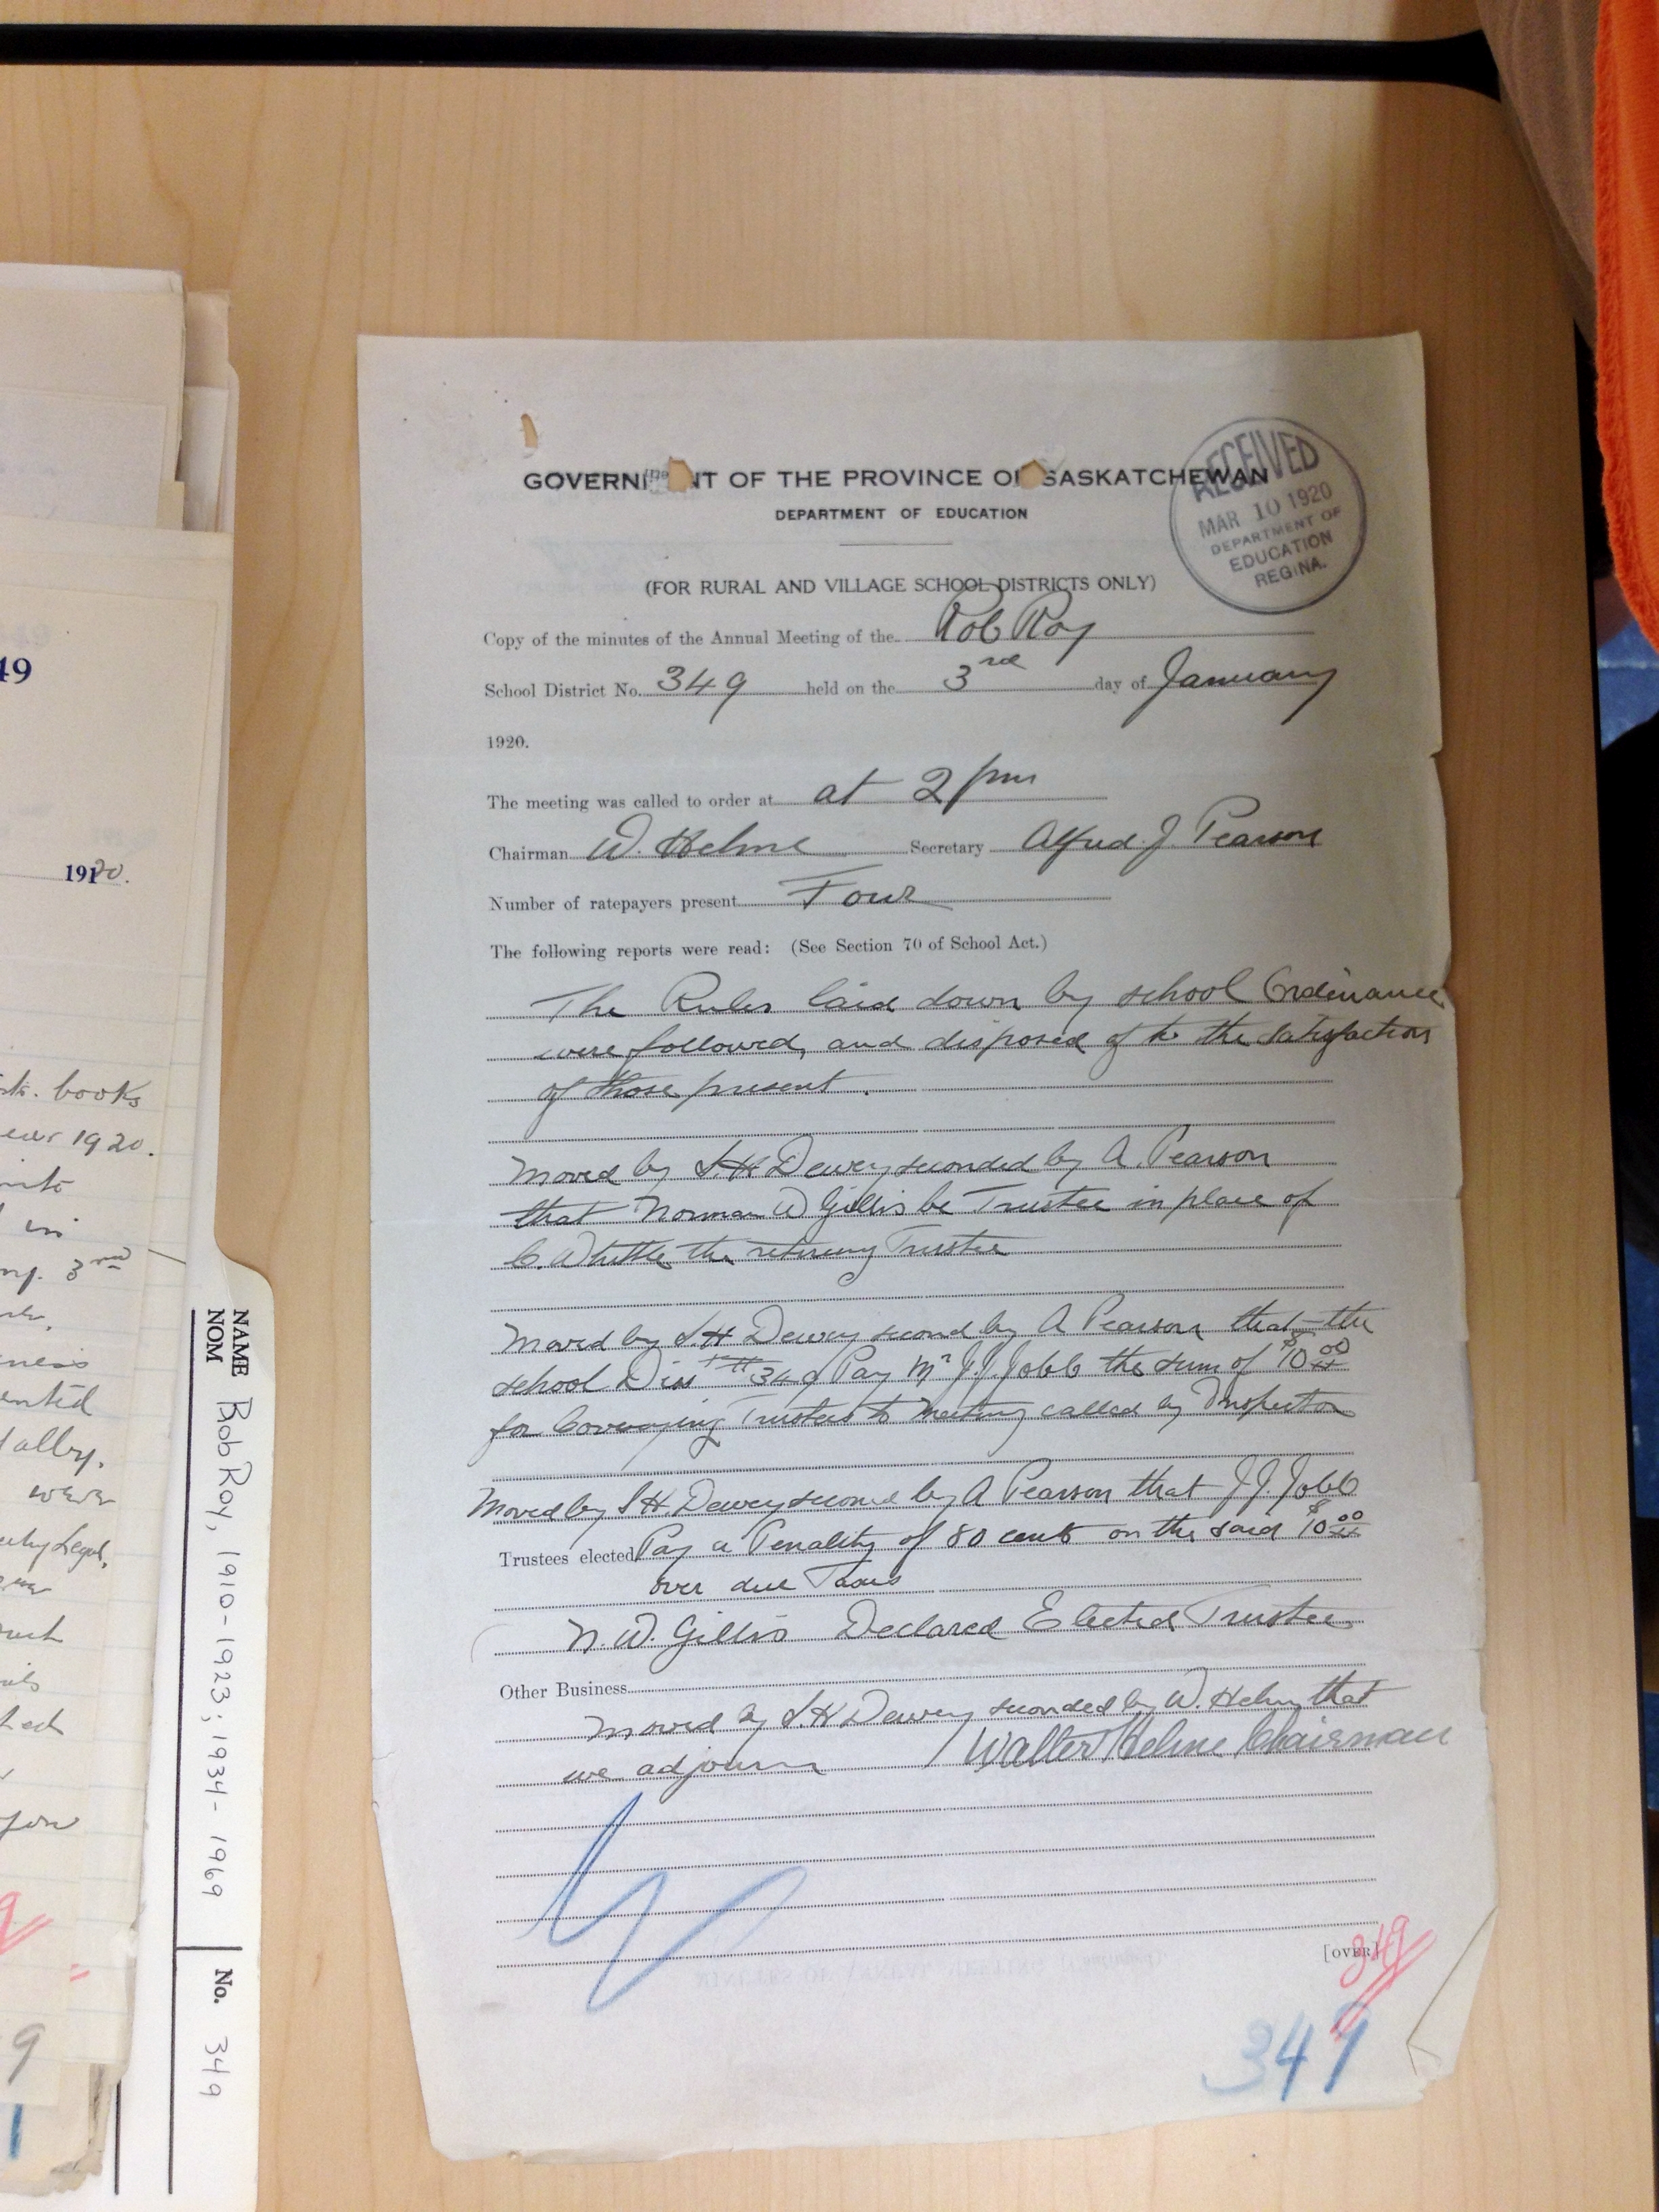 GOVERNMENT OF THE PROVINCE OF SASKATCHEWAN
DEPARTMENT OF EDUCATION
RECEIVED
MAR 10 1920
DEPARTMENT OF
EDUCATION
REGINA.
(FOR RURAL AND VILLAGE SCHOOL DISTRICTS ONLY)
Copy of the minutes of the Annual Meeting of the Rob Roy
School District No. 349 held on the 3rd day of January
1920.
The meeting was called to order at at 2 pm
Chairman W. Helme Secretary Alfred. J. Pearson
Number of ratepayers present Four
The following reports were read: (See Section 70 of School Act.)
The Rules laid down by school Ordinance
were followed, and disposed of to the satisfaction
of those present.
Moved by S.H Dewey seconded by A. Pearson
that Norman W Gillis be Trustee in place of
C. Whittle the retireing Trustee
Moved by S.H Dewey second by A Pearson that the
school Diss 349 Pay Mr J.J. Jobb the sum of $10 00
for Conveying Trustees to Meeting called by Inspector
Moved by S.H. Dewey second by A Pearson that J.J. Jobb
Trustees elected Pay a Penality of 80 cents on the said $10 00
over due Taxes
N. W. Gillis Declared Elected Trustee
Other Business
Moved by S.H Dewey seconded by W. Helme that
we adjourn Walter Helme Chairman
[OVER]
349
349
49
1920.
books
1920.
3rd
were
you
9
NAME
NOM
Bob Roy, 1910-1923; 1934-1969
No. 349